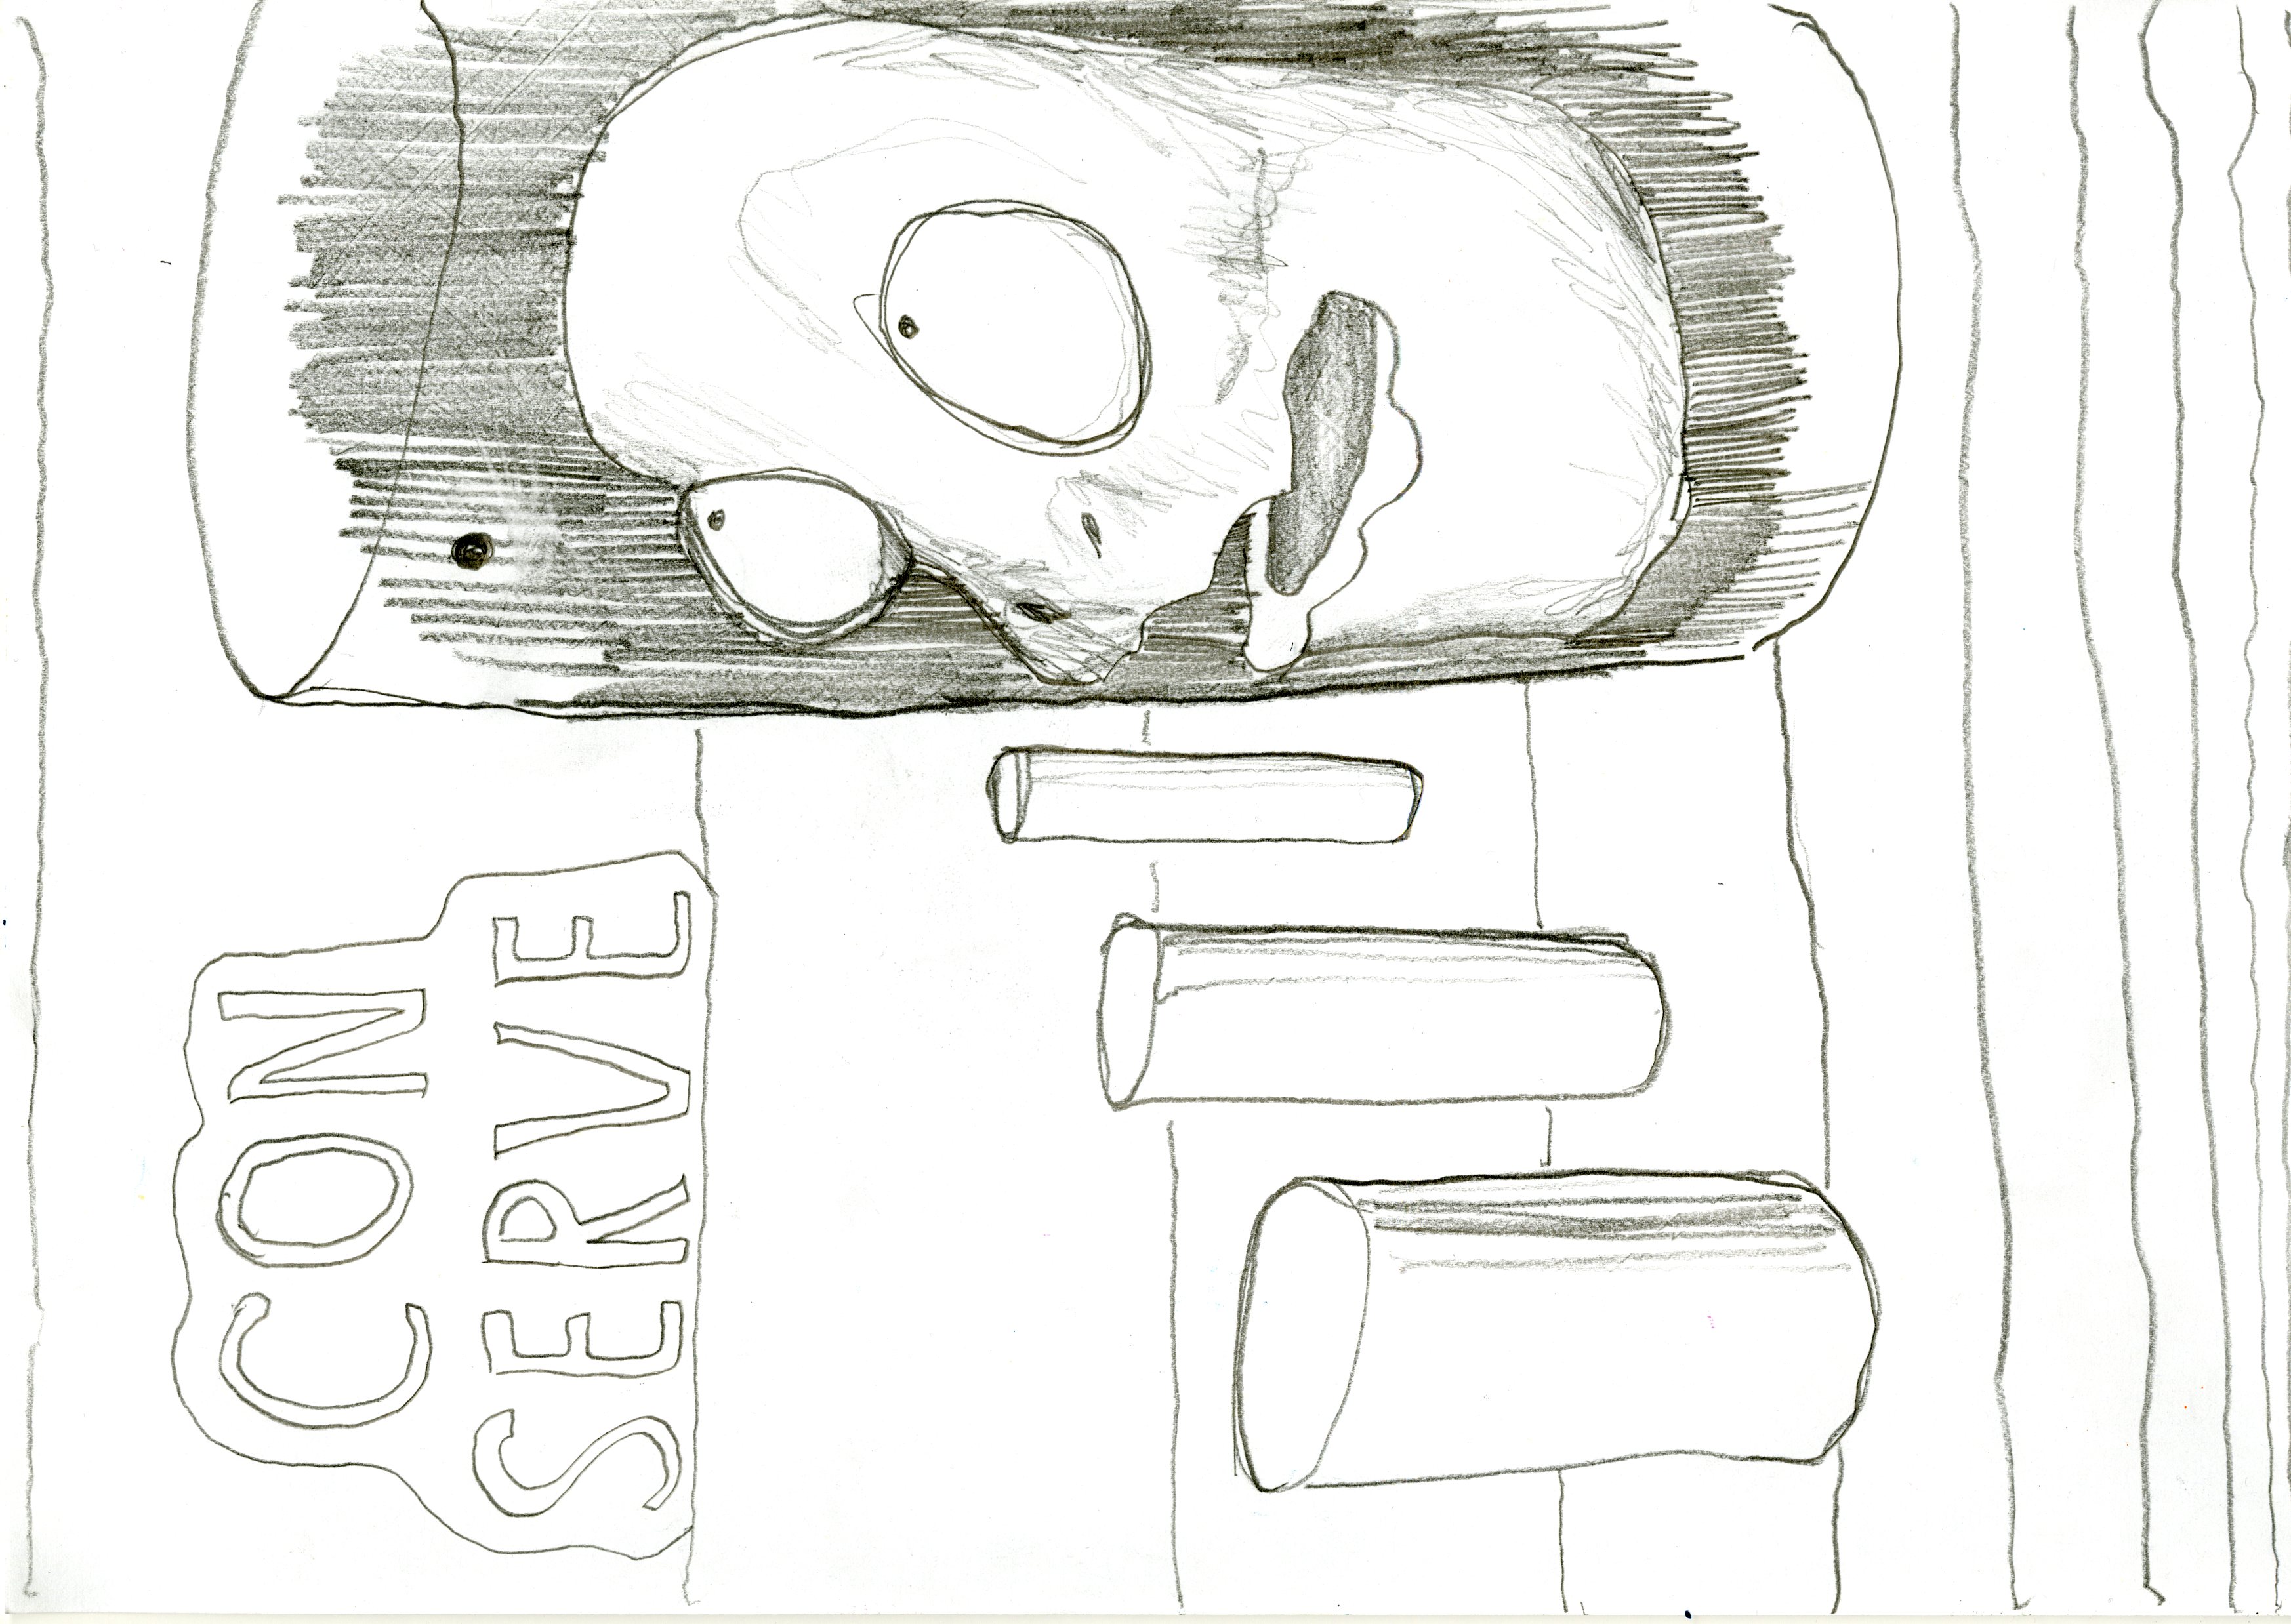 CON
SERVE